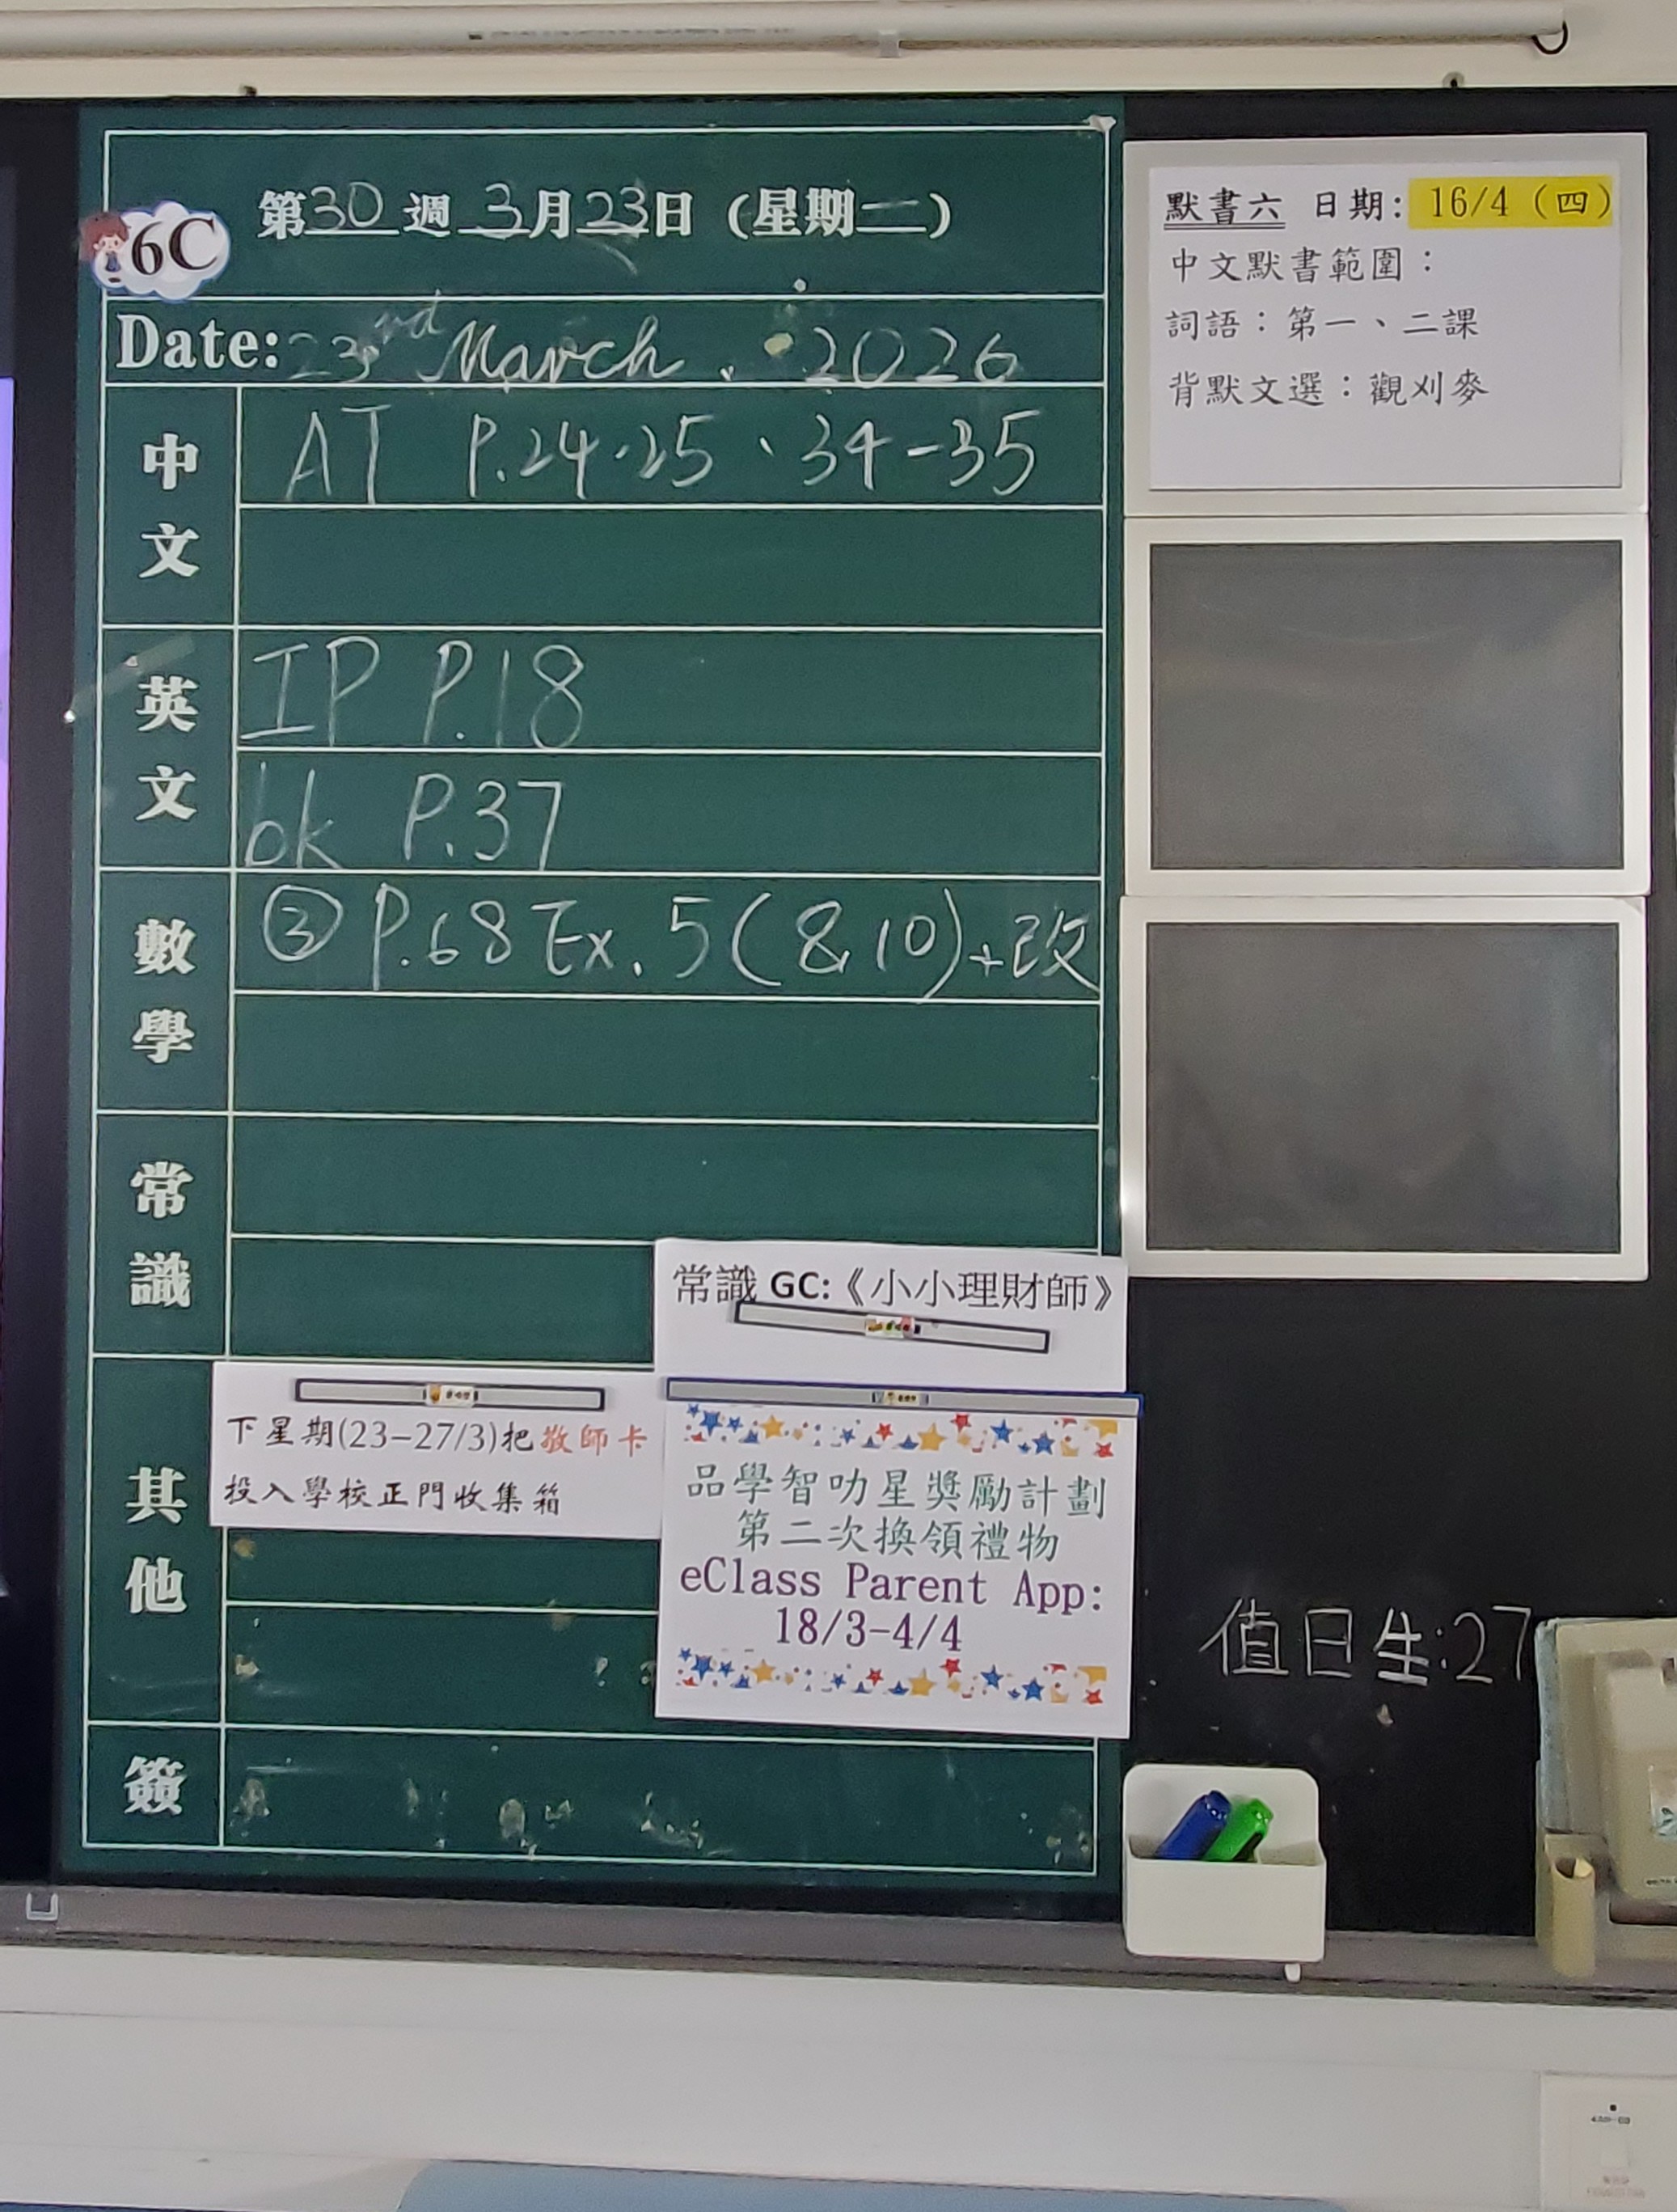 6C
第30週 3月23日 (星期一)
Date: 23rd March, 2026
中文
AT P.24-25、34-35
英文
IP P.18
bk P.37
數學
③ P.68 Ex. 5 (8, 10) + 改
常識
常識 GC:《小小理財師》
其他
下星期(23-27/3)把敬師卡
投入學校正門收集箱
品學智叻星獎勵計劃
第二次換領禮物
eClass Parent App:
18/3-4/4
簽
默書六 日期: 16/4 (四)
中文默書範圍：
詞語：第一、二課
背默文選：觀刈麥
值日生:27